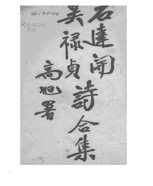 石達開
吴禄貞
詩合集
高旭署